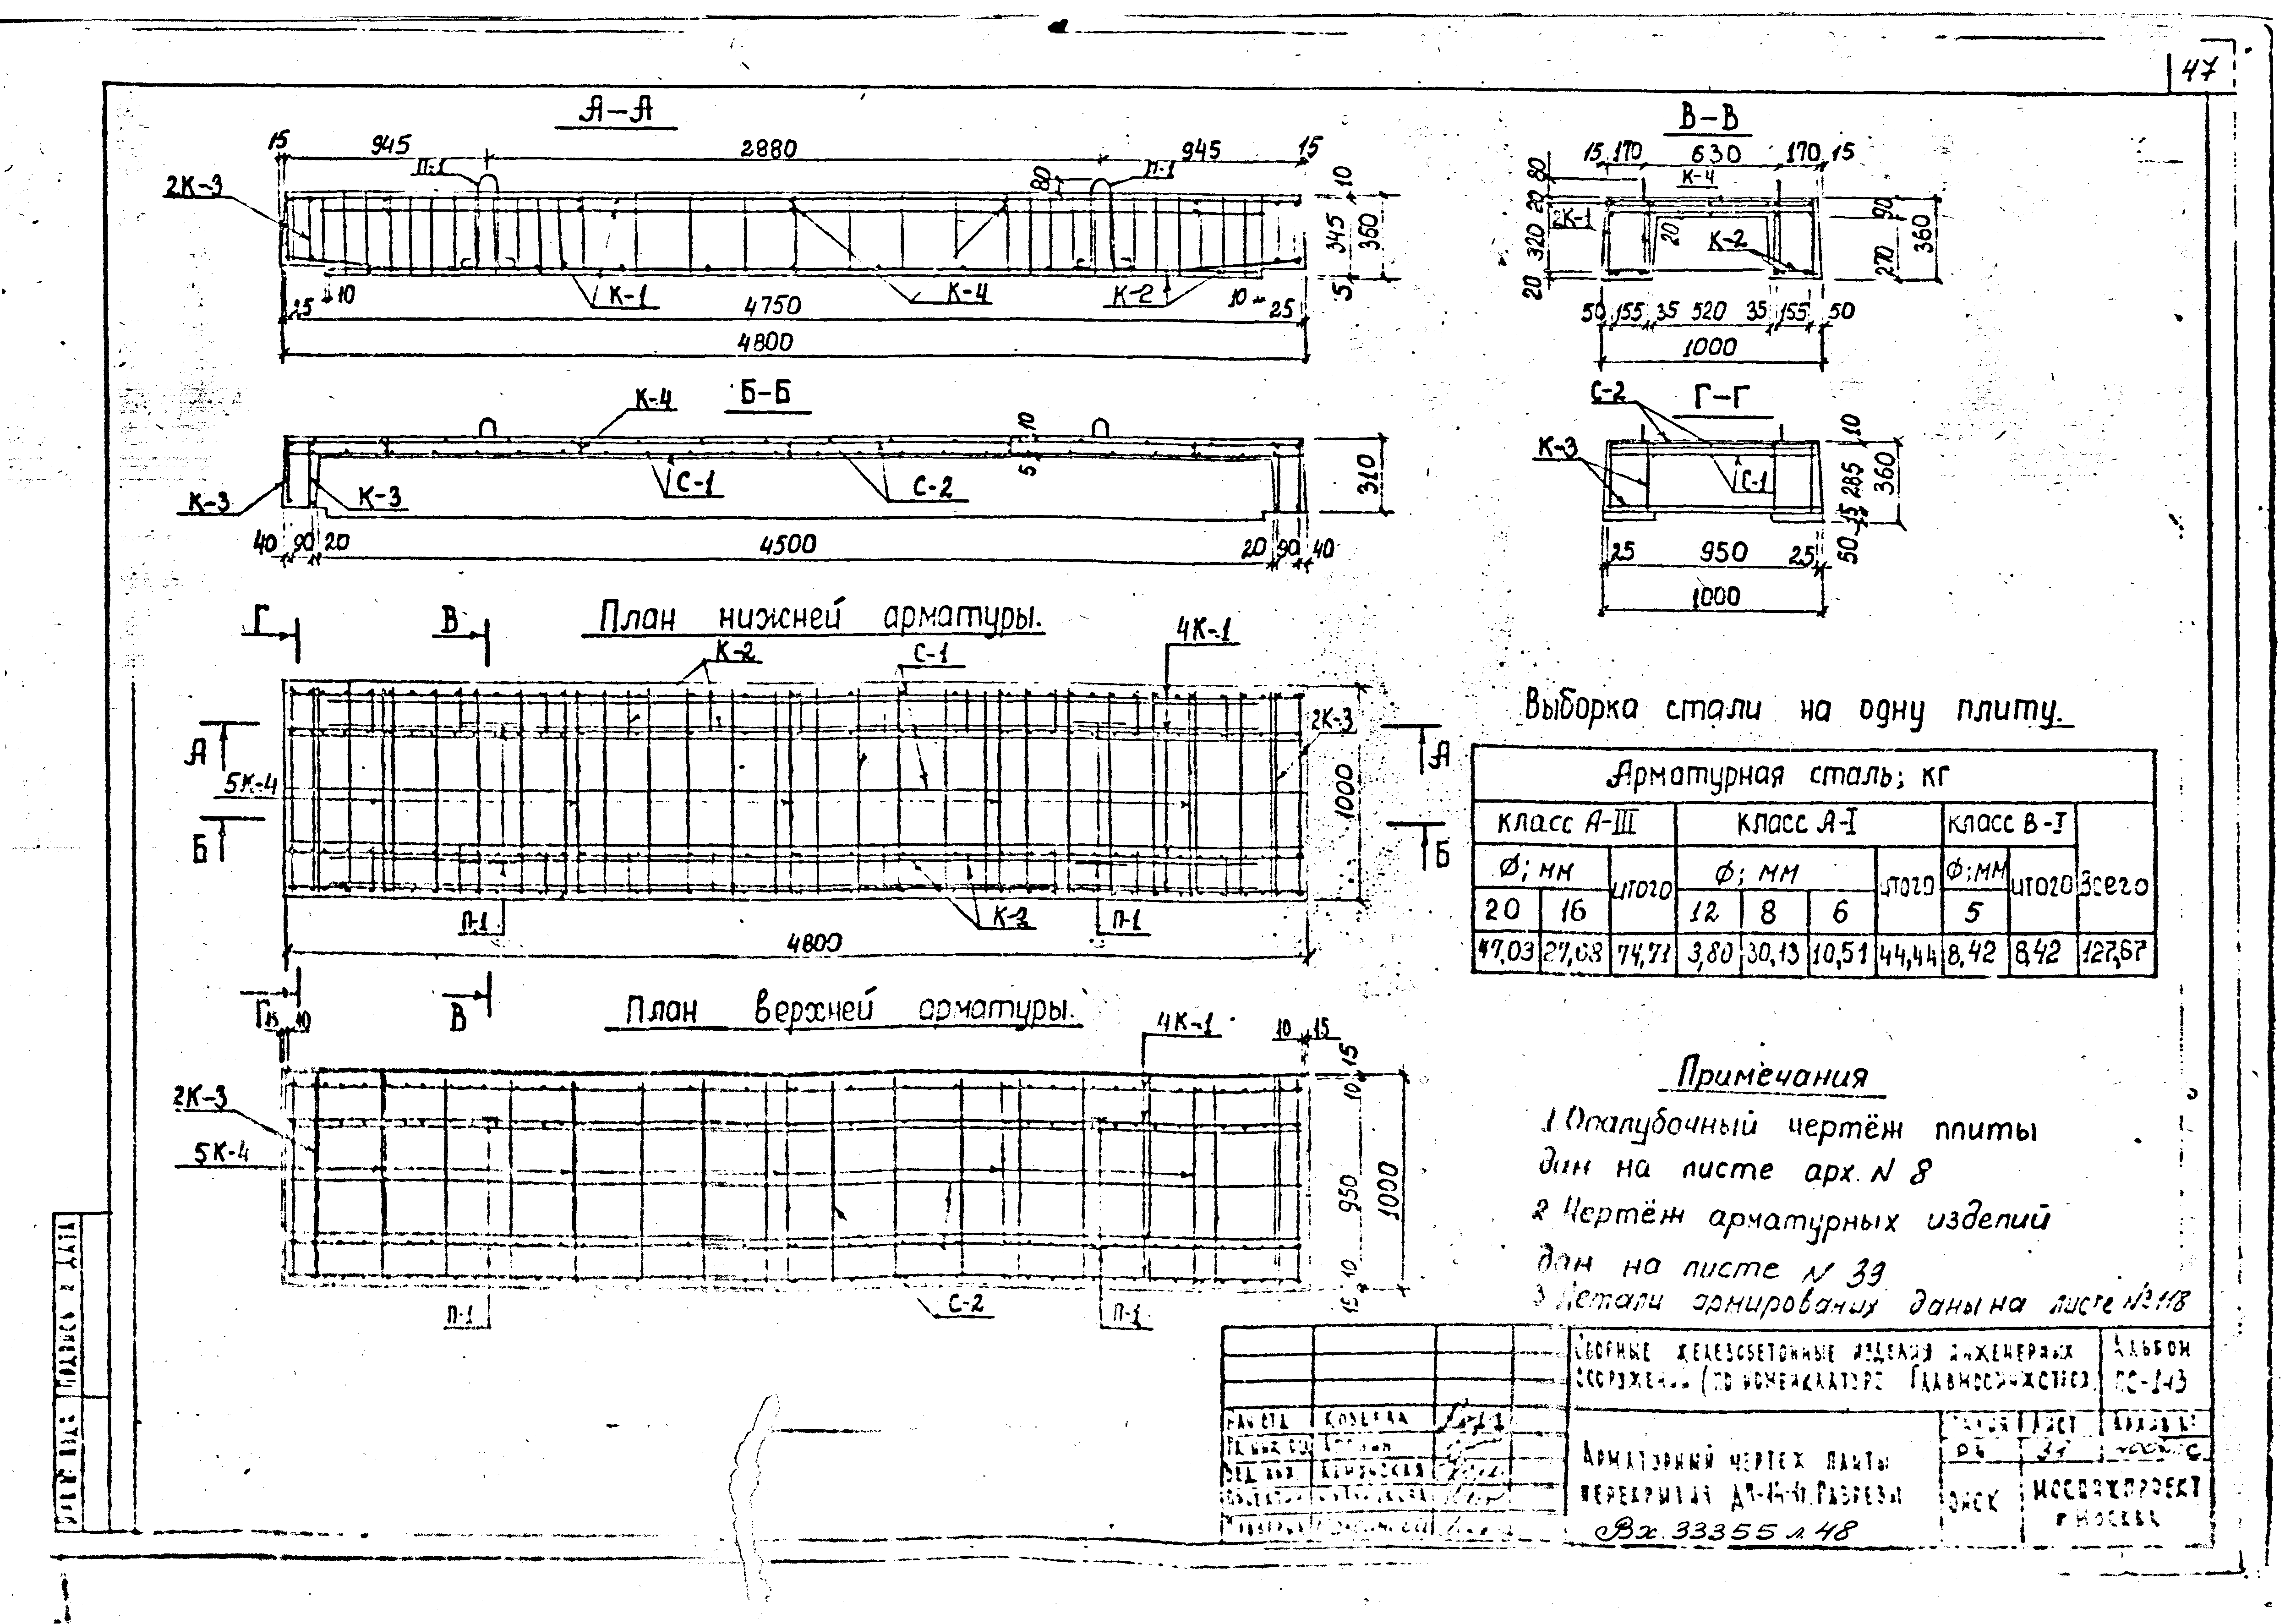 47
А–А
15 945 2880 945 15
П-1 П-1
2К-3
80
10
345 360
5
10 К-1 К-4 К-2 10
25 4750 25
4800
В–В
15 170 630 170 15
К-4
80
20
2К-1
320
20
20
К-2
90
270
360
50 155 35 520 35 155 50
1000
Б–Б
К-4
10
5
К-3 К-3 С-1 С-2
310
40 90 20 4500 20 90 40
Г–Г
С-2
К-3
С-1
10
285 360
15
50
25 950 25
1000
Г В План нижней арматуры.
К-2 С-1 4К-1
2К-3
А А
5К-4
Б Б
1000
П-1 К-2 П-1
4800
Г В
Выборка стали на одну плиту.
Арматурная сталь; кг
класс А-III класс А-I класс В-I
Ф; мм итого Ф; мм итого Ф; мм итого Всего
20 16 12 8 6 5
47,03 27,68 74,71 3,80 30,13 10,51 44,44 8,42 8,42 127,67
План верхней арматуры.
15 10 4К-1 10 15
2К-3
5К-4
15
10
950 1000
10
15
П-1 С-2 П-1
Примечания
1 Опалубочный чертёж плиты
дан на листе арх. N 8
2 Чертёж арматурных изделий
дан на листе N 33
3 Детали армирования даны на листе №118
Сборные железобетонные изделия инженерных
сооружений (по номенклатуре
Альбом
ПС-143
Арматурный чертеж плиты
перекрытия Разрезы
Лист
Мосинжпроект
г Москва
Вх. 33355 л. 48
Подпись и дата